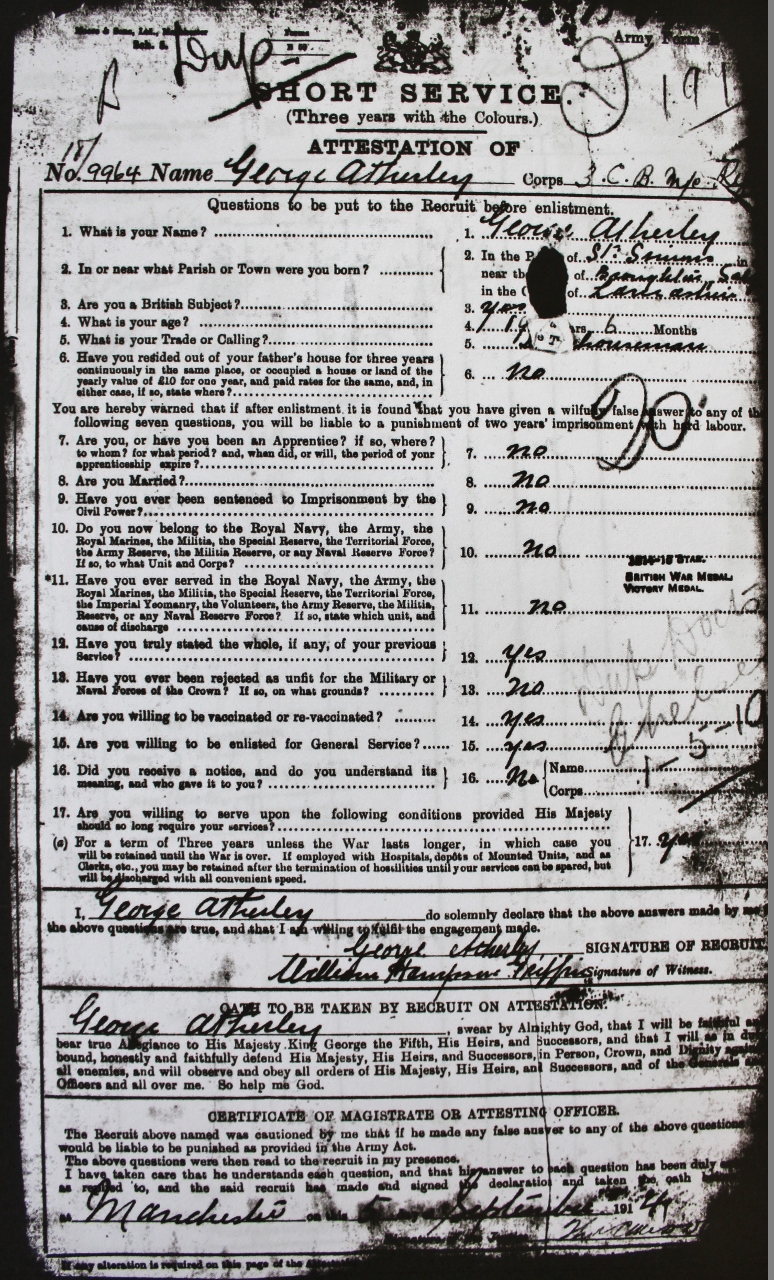 Army Form
Dup
SHORT SERVICE.
(Three years with the Colours.)
ATTESTATION OF
No. 18/9964 Name George Atherley Corps 3. C. B. M/c
Questions to be put to the Recruit before enlistment.
1. What is your Name? 1. George Atherley
2. In or near what Parish or Town were you born? 2. In the P of St. Simons in
near the of Broughton Sal
in the C of Lancashire
3. Are you a British Subject? 3. yes
4. What is your age? 4. 19 rs 6 Months
5. What is your Trade or Calling? 5. houseman
6. Have you resided out of your father's house for three years
continuously in the same place, or occupied a house or land of the
yearly value of £10 for one year, and paid rates for the same, and, in
either case, if so, state where? 6. no
You are hereby warned that if after enlistment it is found that you have given a wilfully false answer to any of the
following seven questions, you will be liable to a punishment of two years' imprisonment with hard labour.
7. Are you, or have you been an Apprentice? if so, where?
to whom? for what period? and, when did, or will, the period of your
apprenticeship expire? 7. no
8. Are you Married? 8. no
9. Have you ever been sentenced to Imprisonment by the
Civil Power? 9. no
10. Do you now belong to the Royal Navy, the Army, the
Royal Marines, the Militia, the Special Reserve, the Territorial Force,
the Army Reserve, the Militia Reserve, or any Naval Reserve Force?
If so, to what Unit and Corps? 10. no
1914-15 STAR.
BRITISH WAR MEDAL.
VICTORY MEDAL.
*11. Have you ever served in the Royal Navy, the Army, the
Royal Marines, the Militia, the Special Reserve, the Territorial Force,
the Imperial Yeomanry, the Volunteers, the Army Reserve, the Militia,
Reserve, or any Naval Reserve Force? If so, state which unit, and
cause of discharge 11. no
12. Have you truly stated the whole, if any, of your previous
Service? 12. yes
13. Have you ever been rejected as unfit for the Military or
Naval Forces of the Crown? If so, on what grounds? 13. no
Dup Docts
Chelsea
14. Are you willing to be vaccinated or re-vaccinated? 14. yes
15. Are you willing to be enlisted for General Service? 15. yes
16. Did you receive a notice, and do you understand its
meaning, and who gave it to you? 16. no Name
Corps
17. Are you willing to serve upon the following conditions provided His Majesty
should so long require your services?
(a) For a term of Three years unless the War lasts longer, in which case you
will be retained until the War is over. If employed with Hospitals, depôts of Mounted Units, and as
Clerks, etc., you may be retained after the termination of hostilities until your services can be spared, but
will be discharged with all convenient speed. 17. yes
I, George Atherley do solemnly declare that the above answers made by me
the above questions are true, and that I am willing to fulfil the engagement made.
George Atherley SIGNATURE OF RECRUIT.
William Hampson Signature of Witness.
OATH TO BE TAKEN BY RECRUIT ON ATTESTATION.
George Atherley, swear by Almighty God, that I will be faithful and
bear true Allegiance to His Majesty King George the Fifth, His Heirs, and Successors, and that I will as in duty
bound, honestly and faithfully defend His Majesty, His Heirs, and Successors, in Person, Crown, and Dignity against
all enemies, and will observe and obey all orders of His Majesty, His Heirs, and Successors, and of the Generals
Officers and all over me. So help me God.
CERTIFICATE OF MAGISTRATE OR ATTESTING OFFICER.
The Recruit above named was cautioned by me that if he made any false answer to any of the above questions
would be liable to be punished as provided in the Army Act.
The above questions were then read to the recruit in my presence.
I have taken care that he understands each question, and that his answer to each question has been duly
as replied to, and the said recruit has made and signed the declaration and taken the oath
at Manchester on this 5 September 1914
If any alteration is required on this page of the